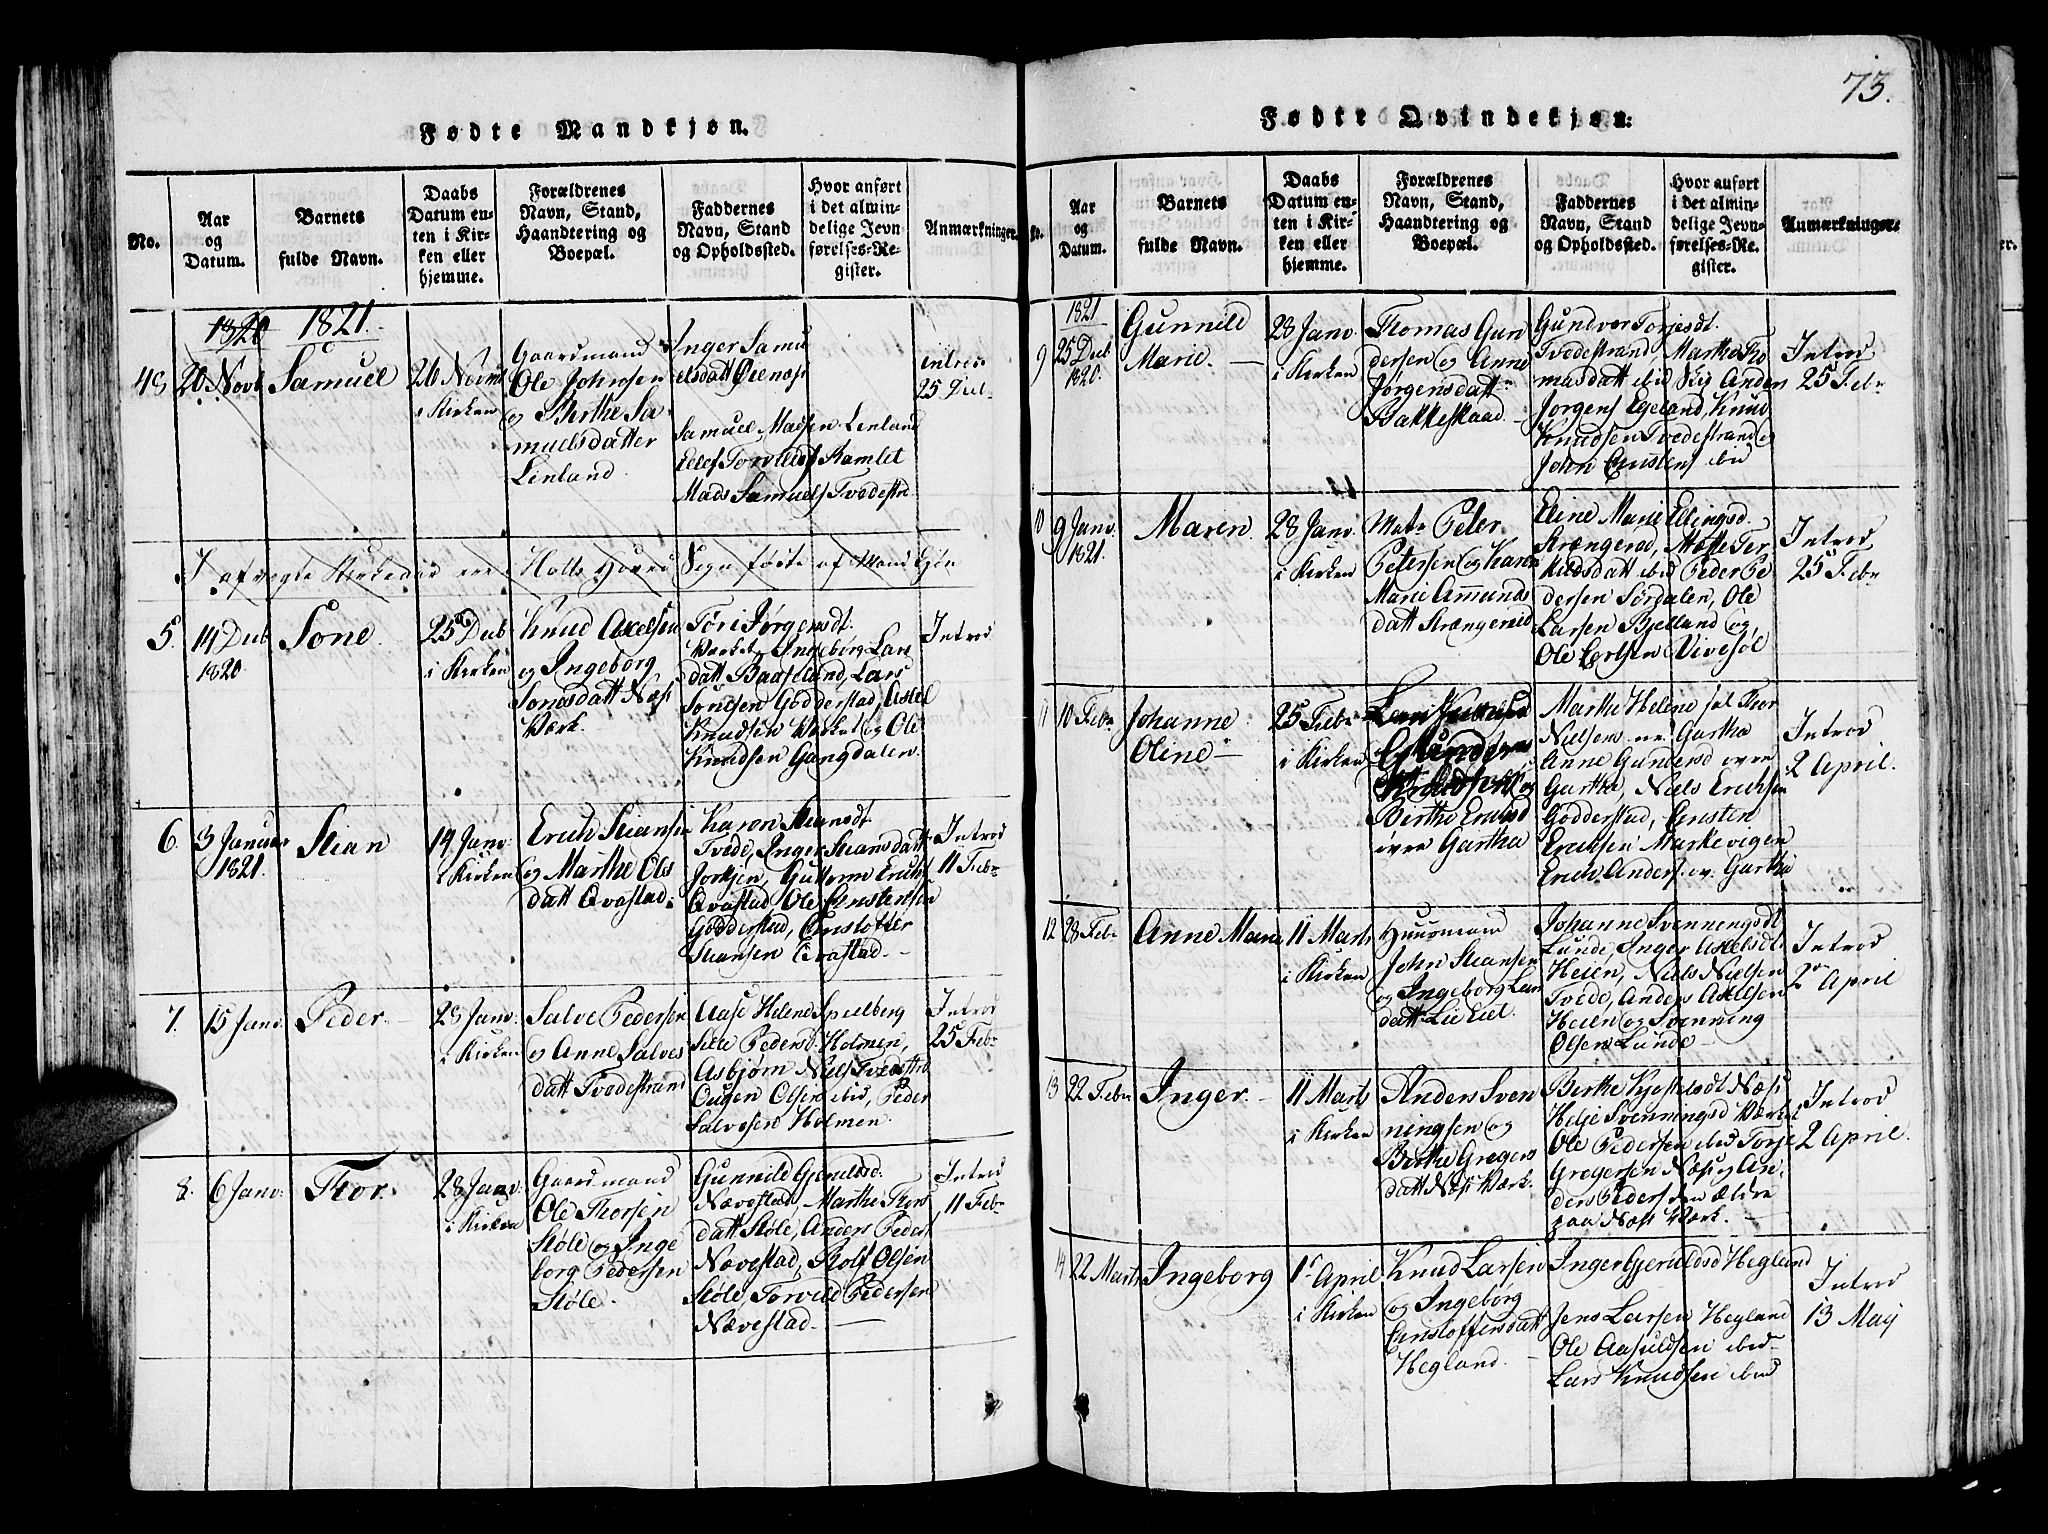 73.
Fødte Mandkjøn.
No.
Aar
og
Datum.
Barnets
fulde Navn.
Daabs
Datum en-
ten i Kir-
ken eller
hjemme.
Forældrenes
Navn, Stand,
Haandtering og
Boepæl.
Faddernes
Navn, Stand
og Opholdssted.
Hvor anført
i det almin-
delige Jevn-
førelses-Re-
gister.
Anmærkninger.
1820 1821.
49
20 Novb
Samuel
26 Novmb
i Kirken
Gaardmand
Ole Johnsen
og Berthe Sa
muelsdatter
Lenland
Inger Samu
elsdatt
Samuel Madsen Lenland
Mads Samuels Tvedestr.
intro
25 Dec
5.
14 Dcb
1820
Sone.
25 Dcb
i Kirken
Knud Axelsen
og Ingeborg
Sonesdatt Næs
Værk
Tøri Jørgensdt.
Værket, Ingeborg Lars
datt Baaseland, Lars
Sonesen Godderstad, Axel
Knudsen Værket og Ole
Knudsen Gangdalen.
Introd
6.
3 Januar
1821.
Stian
14 Janv:
i Kirken
Erich Stiansen
og Marthe Ols
datt Qvastad.
Karen Stiansdt
Tvede, Inger Stiansdatt
Guttorm Erichs
Qvastad, Ole Christensen
Godderstad, Christoffer
Stiansen Qvastad.
Introd
11 Febr
7.
15 Janv.
Peder.
28 Janv:
i Kirken
Salve Pedersen
og Anne Salves
datt Tvedestrand
Aase Helene Speilberg
Pedersd. Holmen,
Asbjørn Niels Tvedestrd
Ougen Olsen ibid, Peder
Salvesen Holmen.
Introd
25 Febr
8.
6 Janv:
Thor.
28 Janv:
i Kirken
Gaardmand
Ole Thorsen
Støle og Inge
borg Pedersen
Støle.
Gunnild
Nævestad, Marthe Thors
datt Støle, Anders Peders
Nævestad, Rolf Olsen
Støle, Torvild Pedersen
Nævestad.
Introd
11 Febr
Fødte Qvindekjøn.
No.
Aar
og
Datum.
Barnets
fulde Navn.
Daabs
Datum en-
ten i Kir-
ken eller
hjemme.
Forældrenes
Navn, Stand,
Haandtering og
Boepæl.
Faddernes
Navn, Stand
og Opholdssted.
Hvor anført
i det almin-
delige Jevn-
førelses-Re-
gister.
Anmærkninger.
1821
9
25 Dcb
1820.
Gunnild
Marie.
28 Janv.
i Kirken
Thomas Gun
dersen og Anne
Jørgensdatt
Bakkeskaad.
Gundvor Torjesdt.
Tvedestrand, Marthe Tho
masdatt ibid Anders
Jørgens Egeland, Knud
Knudsen Tvedestrand og
John Christens ibid
Introd
25 Febr
10
9 Janv.
1821.
Maren.
28 Janv
i Kirken
Matr. Peter
Petersen og Karen
Marie Amunds
datt Strængereid
Eline Marie Ellingsd.
Strængereid, Mette Ter
kildsdatt ibid Peder Pe
dersen Sørdalen, Ole
Larsen Bjelland og
Ole Carlsen Vivesøl
Introd
25 Febr
11
10 Febr
Johanne
Oline
25 Febr
i Kirken
Birthe Erichsd
øvre Gartha
Marthe Helene sal Thor
Nielsens nr Gartha
Anne Gundersd øvre
Gartha, Niels Erichsen
Godderstad, Christen
Erichsen Markevigen
Erich Anders. ov. Gartha
Introd
2 April.
12
28 Febr
Anne Marie
11 Marts
i Kirken
Huusmand
John Stiansen
og Ingeborg Lars
datt Lie Eiet.
Johanne Svenningsdt
Lunde, Inger Axelsdt
Heien, Niels Nielsen
Tvede, Anders Axelsen
Heien og Svenning
Olsen Lunde
Introd
2 April
13
22 Febr
Inger.
11 Marts
i Kirken
Anders Sven
ningsen og
Berthe Gregers
datt Næs Værk.
Berthe Kjestelsdt Næs
Helje Svenningsd Værket
Ole Pedersen ibid Torje
Gregersen Næs og An
ders Peders den Ældre
paa Næs Værk.
Introd
2 April.
14
22 Marts
Ingeborg
1 April
i Kirken
Knud Larsen
og Ingeborg
Christoffersdatt
Hegland.
Inger Gjeruldsd Hegland
Jens Larsen Hegland
Ole Aasuldsen ibid
Lars Knudsen ibid
Introd
13 Maij